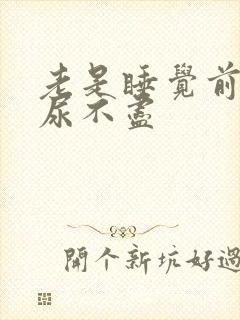 老是睡覺前
尿不盡
開個新坑好過